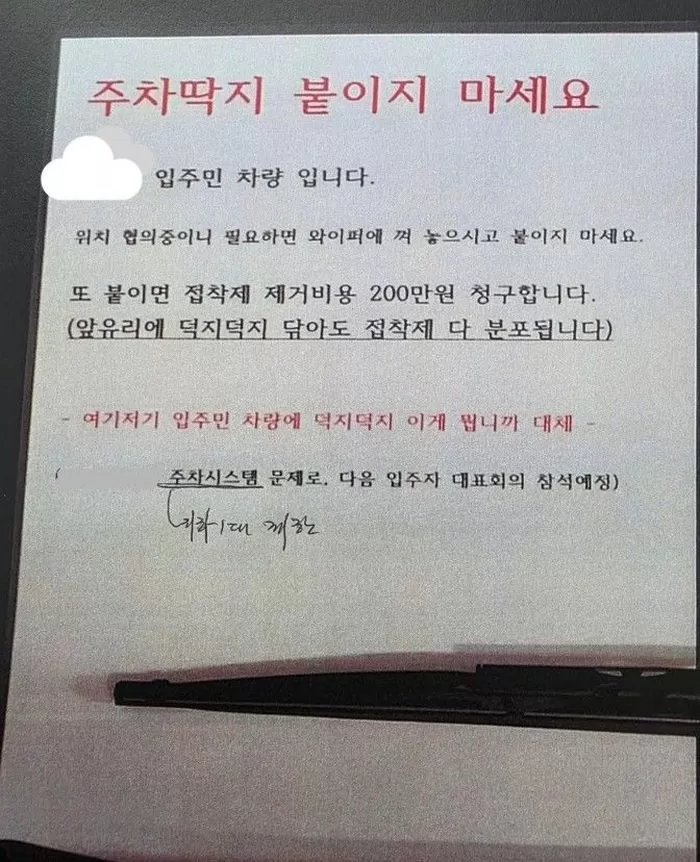 주차딱지 붙이지 마세요
입주민 차량 입니다.
위치 협의중이니 필요하면 와이퍼에 껴 놓으시고 붙이지 마세요.
또 붙이면 접착제 제거비용 200만원 청구합니다.
(앞유리에 덕지덕지 닦아도 접착제 다 분포됩니다)
- 여기저기 입주민 차량에 덕지덕지 이게 뭡니까 대체 -
( 주차시스템 문제로. 다음 입주자 대표회의 참석예정)
1대 제한